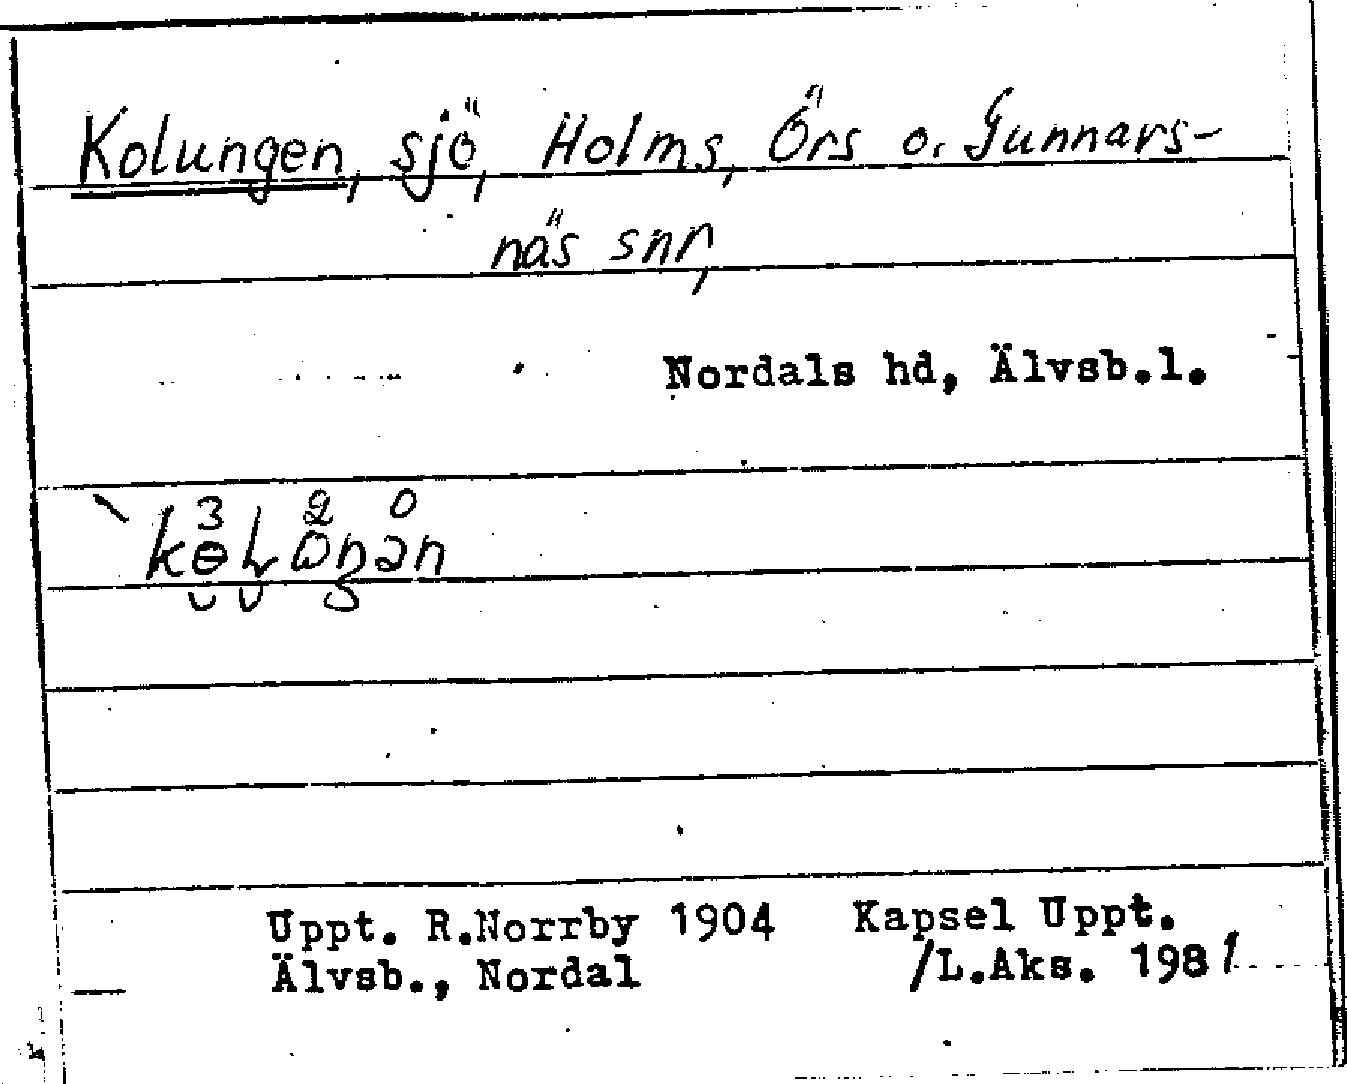 Kolungen, sjö, Holms, Örs o. Gunnars-
näs snr,
Nordals hd, Älvsb.l.
Uppt. R.Norrby 1904 Kapsel Uppt.
Älvsb., Nordal /L.Aks. 1981